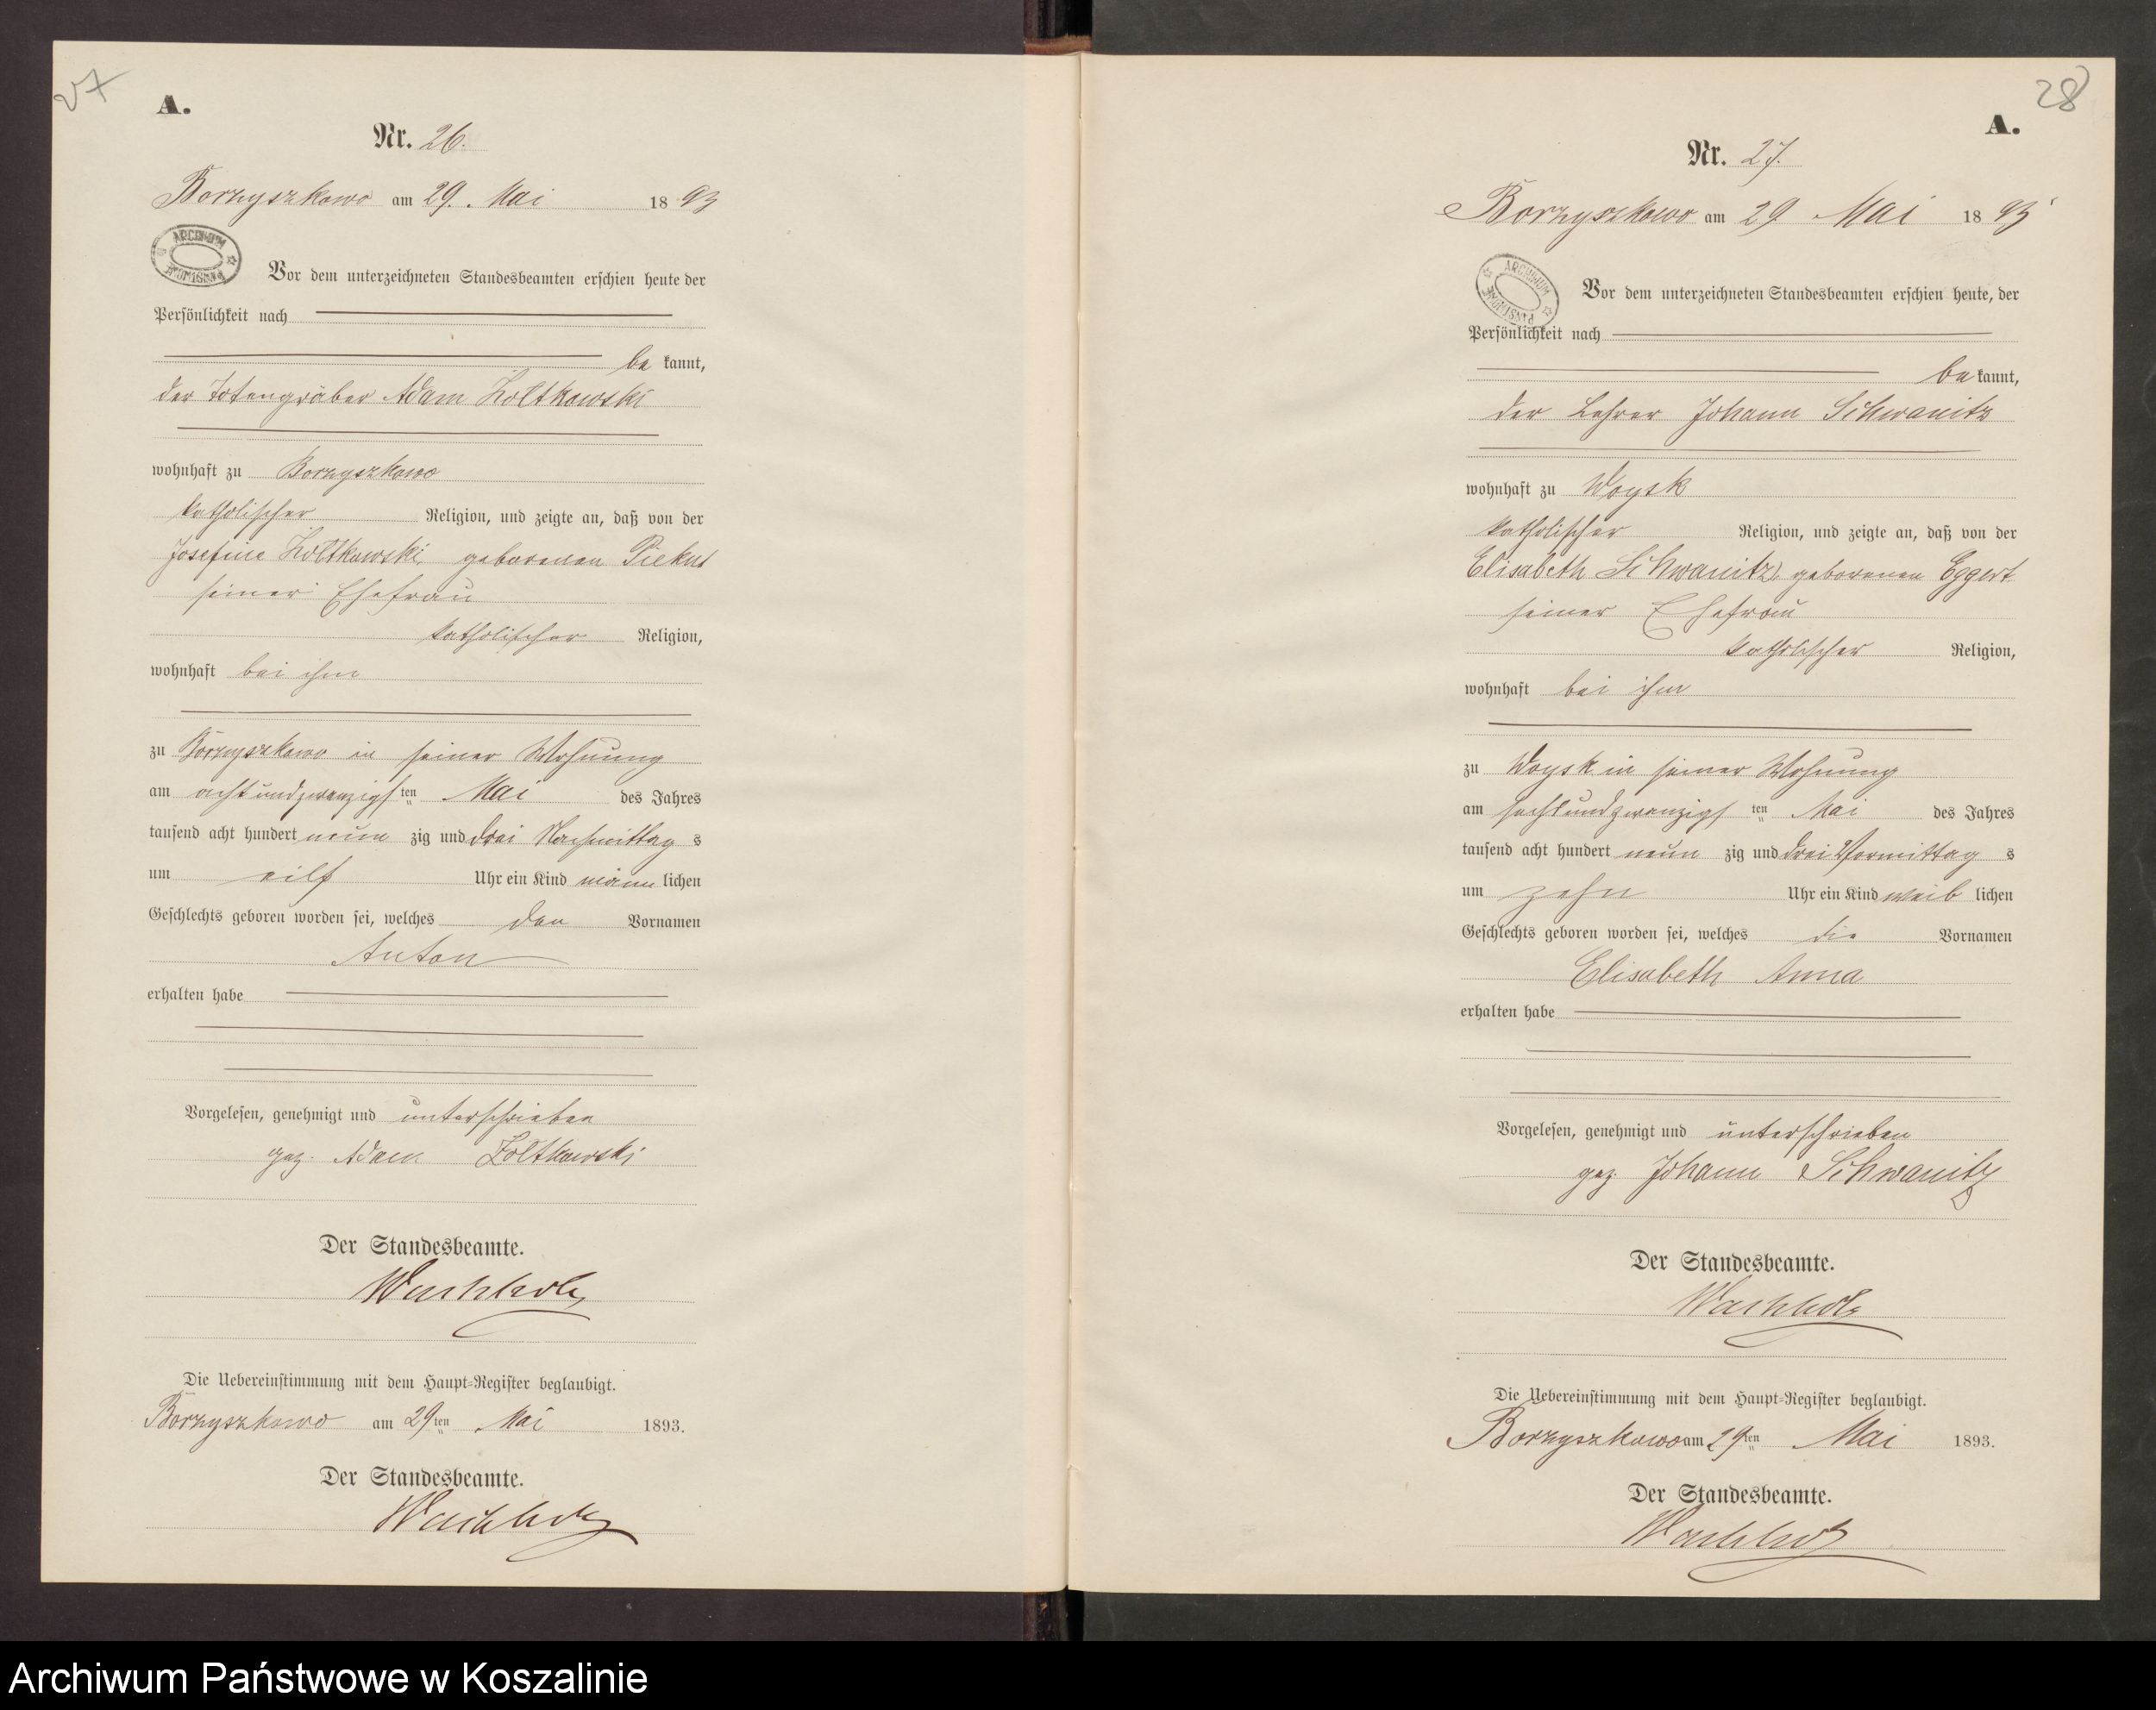 27
A.
Nr. 26.
Borzyszkowo am 29. Mai 1893
ARCHIWUM PAŃSTWOWE
Vor dem unterzeichneten Standesbeamten erschien heute der
Persönlichkeit nach
be kannt,
der Totengräber Adam Zoltkowski
wohnhaft zu Borzyszkowo
katholischer Religion, und zeigte an, daß von der
Josefine Zoltkowski, geborenen Piekut
seiner Ehefrau
katholischer Religion,
wohnhaft bei ihm
zu Borzyszkowo in seiner Wohnung
am achtundzwanzigs ten Mai des Jahres
tausend acht hundert neun zig und drei Nachmittag s
um eilf Uhr ein Kind männ lichen
Geschlechts geboren worden sei, welches den Vornamen
Anton
erhalten habe
Vorgelesen, genehmigt und unterschrieben
gez. Adam Zoltkowski
Der Standesbeamte.
Wachholz
Die Uebereinstimmung mit dem Haupt-Register beglaubigt.
Borzyszkowo am 29ten Mai 1893.
Der Standesbeamte.
Wachholz
28
A.
Nr. 27.
Borzyszkowo am 29 Mai 1893
ARCHIWUM PAŃSTWOWE
Vor dem unterzeichneten Standesbeamten erschien heute, der
Persönlichkeit nach
be kannt,
der Lehrer Johann Schwanitz
wohnhaft zu Woysk
katholischer Religion, und zeigte an, daß von der
Elisabeth Schwanitz, geborenen Eggert
seiner Ehefrau
katholischer Religion,
wohnhaft bei ihm
zu Woysk in seiner Wohnung
am sechsundzwanzigs ten Mai des Jahres
tausend acht hundert neun zig und drei Vormittag s
um zehn Uhr ein Kind weib lichen
Geschlechts geboren worden sei, welches die Vornamen
Elisabeth Anna
erhalten habe
Vorgelesen, genehmigt und unterschrieben
gez. Johann Schwanitz
Der Standesbeamte.
Wachholz
Die Uebereinstimmung mit dem Haupt-Register beglaubigt.
Borzyszkowo am 29ten Mai 1893.
Der Standesbeamte.
Wachholz
Archiwum Państwowe w Koszalinie